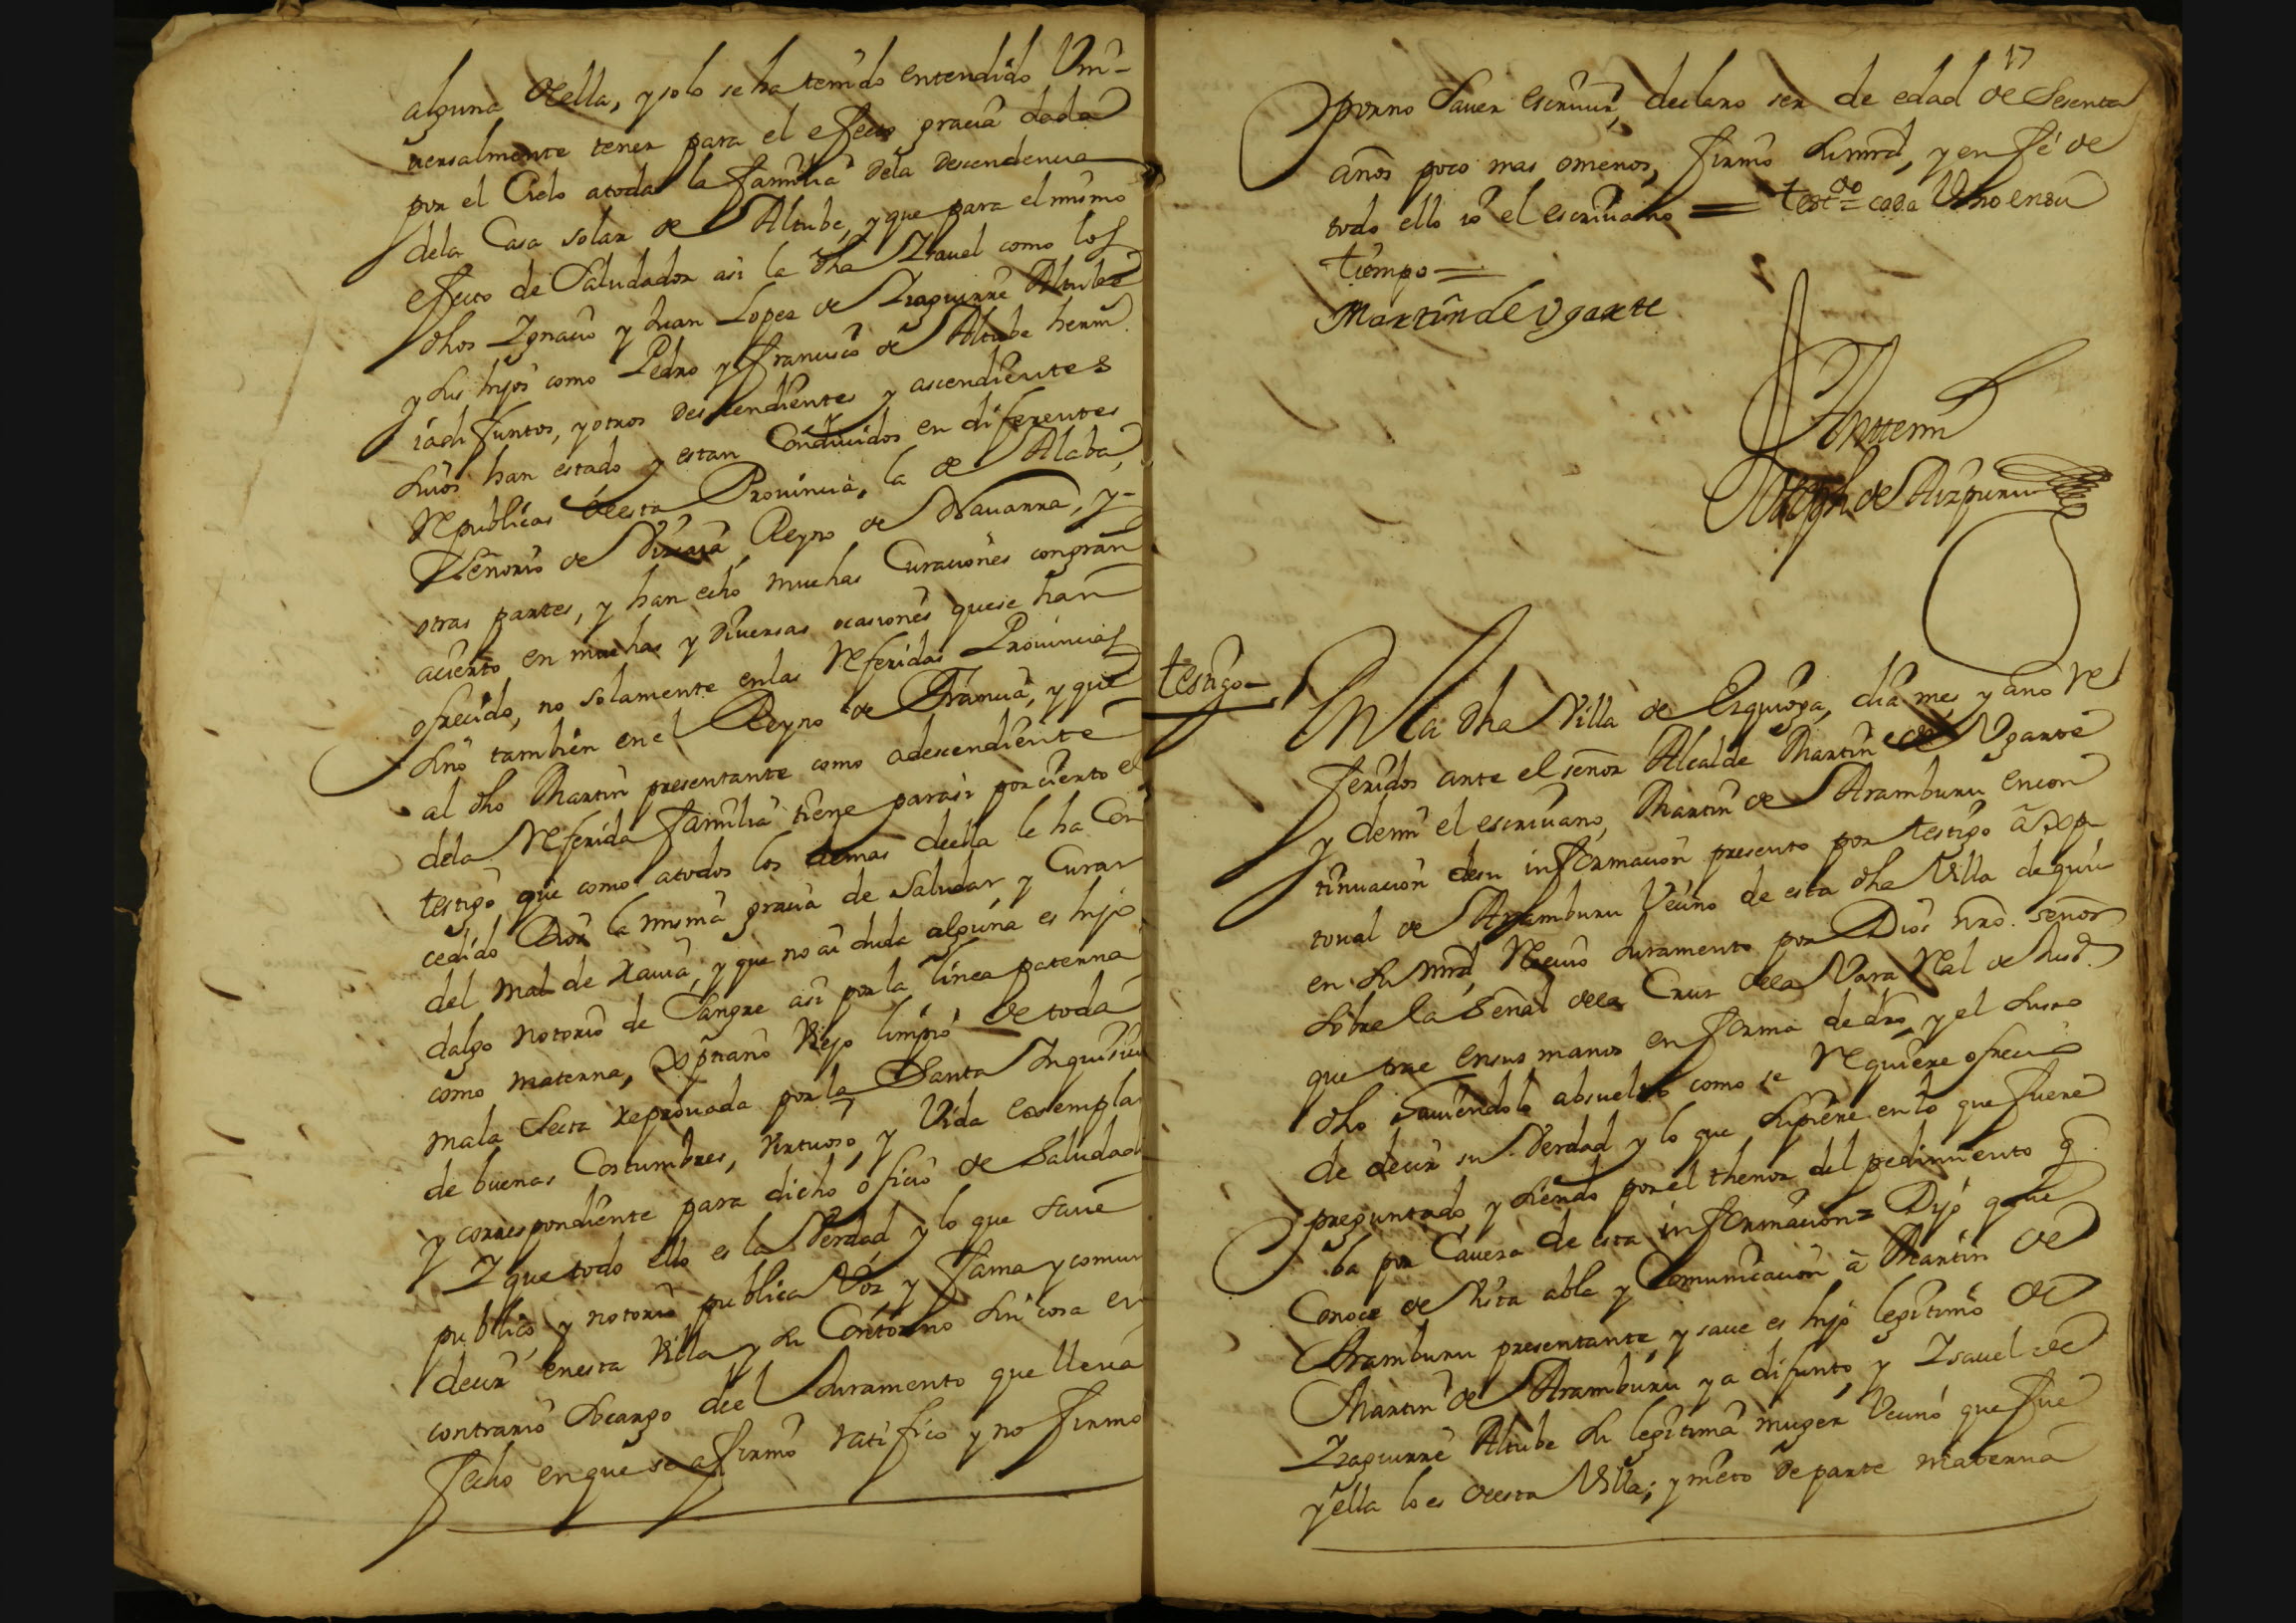 alguna della, y solo se ha tenido entendido Vni-
uersalmente tener para el efecto gracia dada
por el Cielo atoda la familia dela Descendencia
dela Casa solar de Altube, y que para el mismo
efecto de Saludador asi la dha Izauel como los
dhos Ignacio y Juan Lopez de Izaguirre Altube
y sus hijos como Pedro y Francisco de Altube herm.
ia difuntos, y otros descendientes y ascendientes
suios han estado y estan Conducidos en diferentes
Republicas desta Prouincia, la de Alaba,
Señorio de Vizcaia, Reyno de Nauarra, y-
otras partes, y han echo muchas Curaciones con gran
acierto en muchas y diuersas ocasiones que se han
ofrecido, no solamente en las Referidas Prouincias
sino tambien en el Reyno de Francia, y que
al dho Martin presentante como adescendiente
dela Referida familia tiene parasi por cierto el
testigo que como atodos los demas della le ha Con
cedido Dios la misma gracia de Saludar, y Curar
del Mal de Rauia, y que no ai duda alguna es hijo
dalgo notorio de Sangre asi por la linea paterna
como materna, Xptiano Viejo limpio de toda
mala Secta reprouada por la Santa Inquisicion
de buenas Costumbres, Virtuoso, y Vida exemplar
y correspondiente para dicho oficio de Saludador
Y que todo ello es la Verdad y lo que saue
publico, y notorio publica Vóz y fama y comun
decir en esta Villa y su Contorno sin cosa en
contrario Socargo del Juramento que lleua
fecho en que se afirmó ratificó y no firmó
17
por no Sauer escriuir, declaro ser de edad de Sesenta
años poco mas omenos, firmó su mrd, y en fé de
todo ello io el escriuano = testdo = cada Vno en su
tiempo =
Martin de Vgarte
Antemi
Joseph de Aizpuru
testigo-
En la dha Villa de Ezquioga, dia mes y año re
feridos ante el señor Alcalde Martin de Vgarte
y demi el escriuano, Martin de Aramburu en con
tinuacion desu informacion presento por testigo à Xp-
toual de Aramburu Vecino de esta dha Villa de quien
su mrd, Reciuio Juramento por Dios nro. señor
sobre la señal dela Cruz dela Vara Real de Just.
que trae en sus manos en forma de dro, y el suso
dho hauiendolo absuelto como se Requiere ofrecio
de decir su Verdad y lo que supiere en lo que fuere
preguntado, y siendo por el thenor del pedimiento q
ba por Caueza de esta informacion= Dijo que
Conoce de Vista abla y Comunicacion à Martin de
Aramburu presentante, y saue es hijo legitimo de
Martin de Aramburu ya difunto, y Isauel de
Izaguirre Altube su legitima muger Vecino que fue
y ella lo es desta Villa; y nieto de parte materna